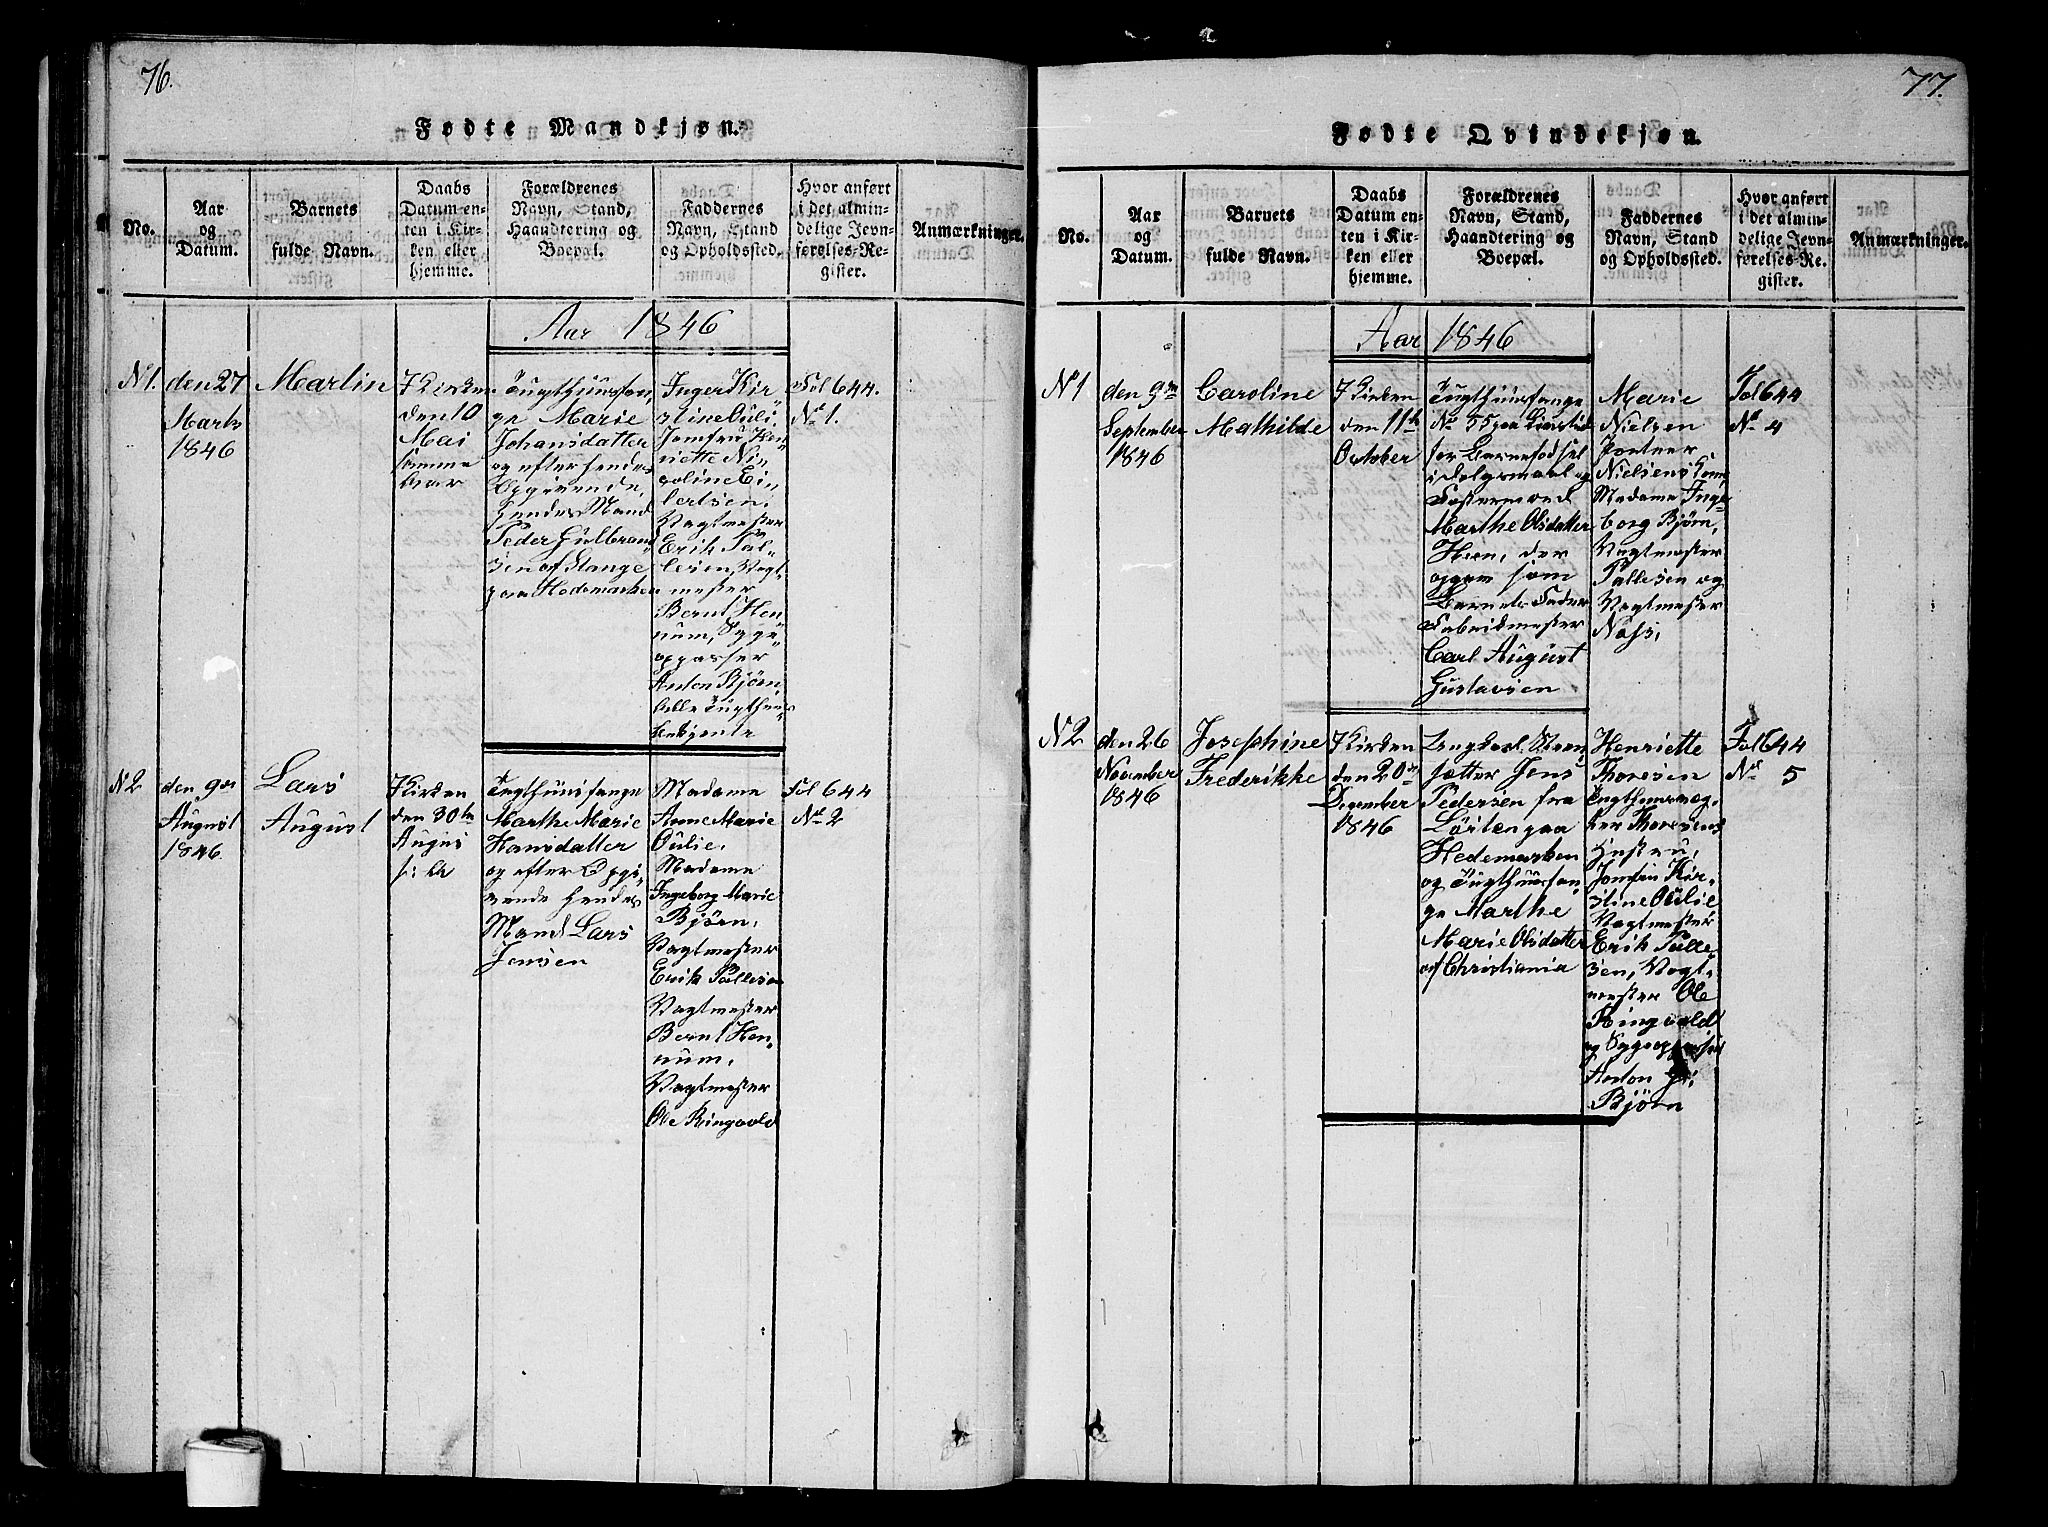 76.
Fødte Mandkjøn.
No.
Aar
og
Datum.
Barnets
fulde Navn.
Daabs
Datum en-
ten i Kir-
ken eller
hjemme.
Forældrenes
Navn, Stand,
Haandtering og
Boepæl.
Faddernes
Navn, Stand
og Opholdssted.
Hvor anført
i det almin-
delige Jevn-
førelses-Re-
gister.
Anmærkninger.
Aar 1846
N 1.
den 27
Marts
1846
Martin
I Kirken
den 10
Mai
samme
Aar
Tugthuusfan-
ge Marie
Johansdatter
og efter hendes
Opgivende,
hendes Mand
Peder Gulbrand-
sen af Stange
paa Hedemarken
Inger Kir-
stine Oulie,
Jomfru Hen-
riette Ni-
coline Ein-
bertsen,
Vagtmester
Erik Pal-
lesen, Vagt-
mester
Bernt Hen-
num, Syge-
oppasser
Anton Bjørn
alle Tugthuus-
betjente
Fol 644.
No 1.
N 2
den 9de
August
1846.
Lars
August
I Kirken
den 30te
August
s: A
Tugthuusfange
Marthe Marie
Hansdatter
og efter Opgi-
vende hendes
Mand Lars
Jensen
Madame
Anne Marie
Oulie,
Madame
Ingeborg Marie
Bjørn,
Vagtmester
Erik Pallesen
Vagtmester
Bernt Hen-
num,
Vagtmester
Ole Ringvold
Fol 644
No 2
77.
Fødte Qvindekjøn.
No.
Aar
og
Datum.
Barnets
fulde Navn.
Daabs
Datum en-
ten i Kir-
ken eller
hjemme.
Forældrenes
Navn, Stand,
Haandtering og
Boepæl.
Faddernes
Navn, Stand
og Opholdssted.
Hvor anført
i det almin-
delige Jevn-
førelses-Re-
gister.
Anmærkninger.
Aar 1846
No 1
den 9de
September
1846
Caroline
Mathilde
I Kirken
den 11te
October
Tugthuusfange
No 55 paa Livstid
for Barnefødsel
i Dølgsmaal og
Fostermord
Marthe Olsdatter
Hern, der
opgav som
Barnets Fader
Fabrikmester
Carl August
Gustavsen
Marie
Nielsen
Portner
Nielsens Kone,
Madame Inge-
borg Bjørn,
Vagtmester
Pallesen og
Vagtmester
Næss.
Fol 644
No 4
N 2
den 26
November
1846
Josephine
Frederikke
I Kirken
den 20de
December
1846
Jens
Pedersen fra
Løiten paa
Hedemarken
og Tugthuusfan-
ge Marthe
Marie Olsdatter
af Christiania
Henriette
Thoresen
Tugthuusvæg-
ter Thoresens
Hustru,
Jomfru Kir-
stine Oulie
Vagtmester
Erik Palle-
sen, Vagt-
mester Ole
Ringvold
og Sygeoppasser
Anton
Bjørn
Fol 644
No 5